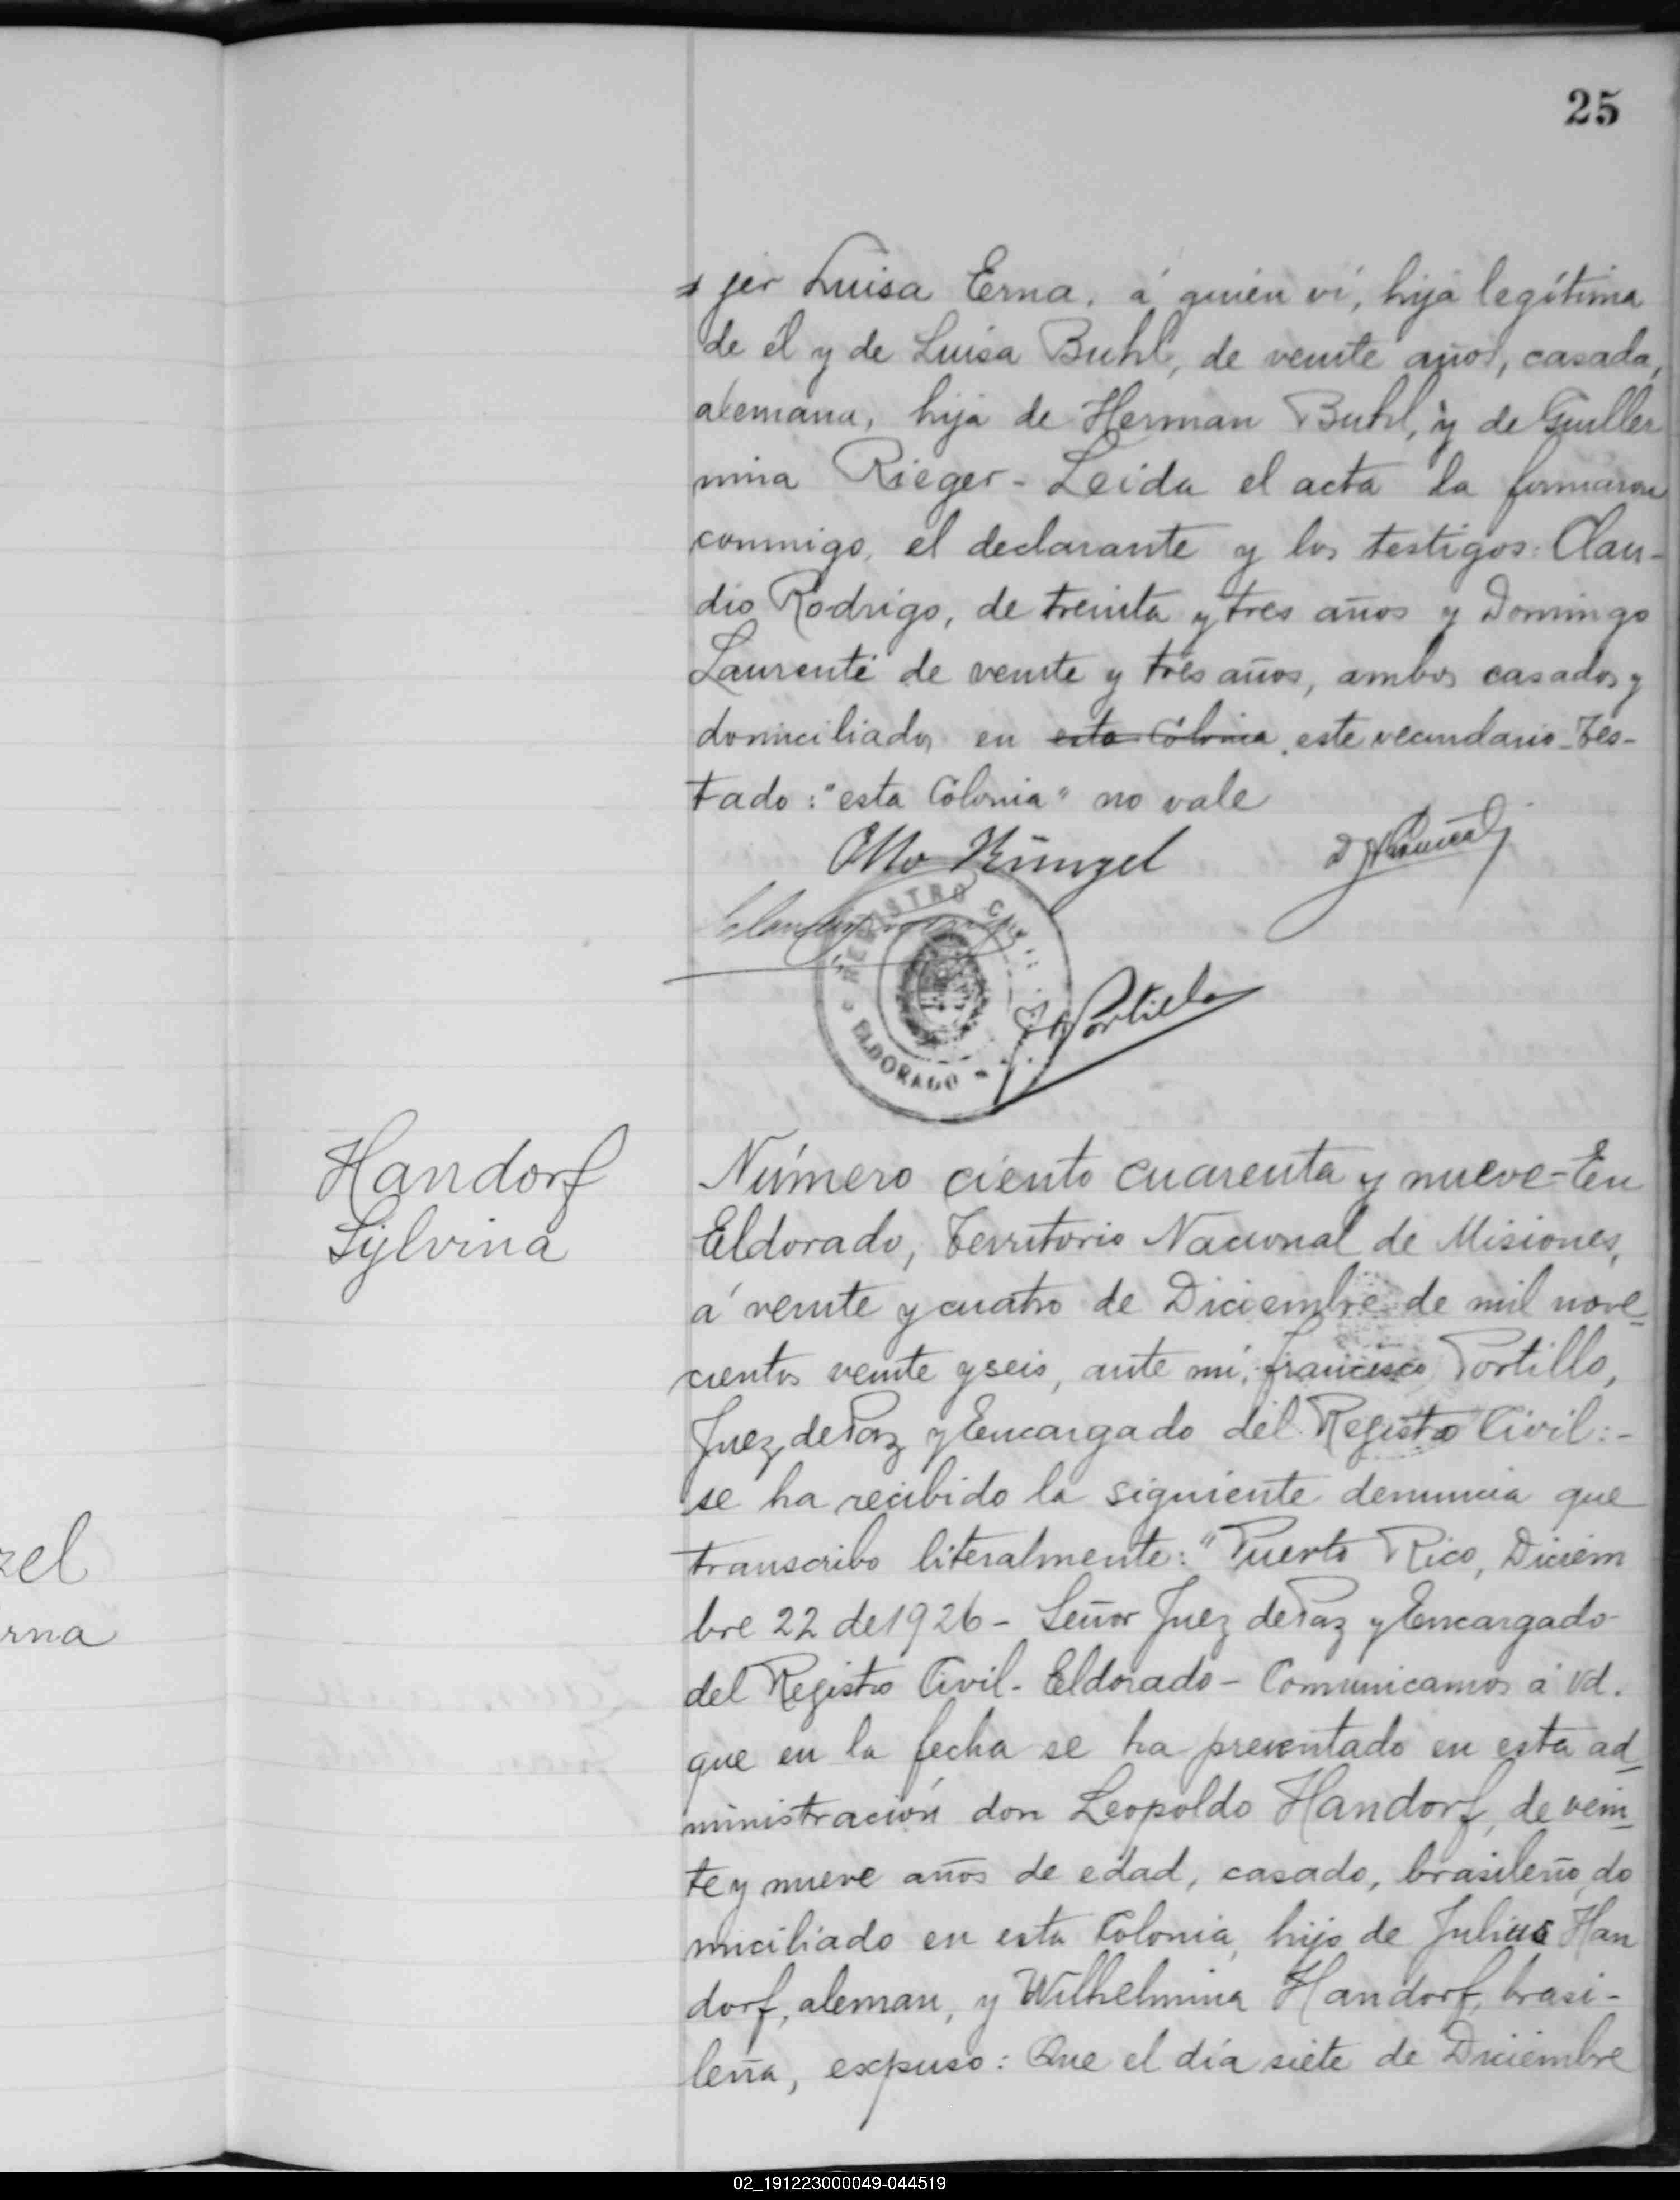 25
jer Luisa Erna, á quién ví, hija legítima
de él y de Luisa Buhl, de veinte años, casada,
alemana, hija de Herman Buhl, y de Guiller
mina Rieger - Leida el acta la firmaron
conmigo, el declarante y los testigos: Clau-
dio Rodrigo, de treinta y tres años y Domingo
Laurenti de veinte y tres años, ambos casados y
domiciliados en esta Colonia este vecindario - Tes-
tado: "esta Colonia" no vale
Otto Künzel
REGISTRO CIVIL
Portillo
ELDORADO
Handorf
Sylvina
Número ciento cuarenta y nueve - En
Eldorado, Territorio Nacional de Misiones,
á veinte y cuatro de Diciembre de mil nove
cientos veinte y seis, ante mí, Francisco Portillo,
Juez de Paz y Encargado del Registro Civil: -
se ha recibido la siguiente denuncia que
transcribo literalmente: "Puerto Rico, Diciem
bre 22 de 1926 - Señor Juez de Paz y Encargado
del Registro Civil - Eldorado - Comunicamos á Vd.
que en la fecha se ha presentado en esta ad
ministración don Leopoldo Handorf, de vein
te y nueve años de edad, casado, brasileño, do
miciliado en esta Colonia, hijo de Julius Han
dorf, aleman, y Wilhelmina Handorf, brasi-
leña, expuso: Que el día siete de Diciembre
zel
rna
02_191223000049-044519